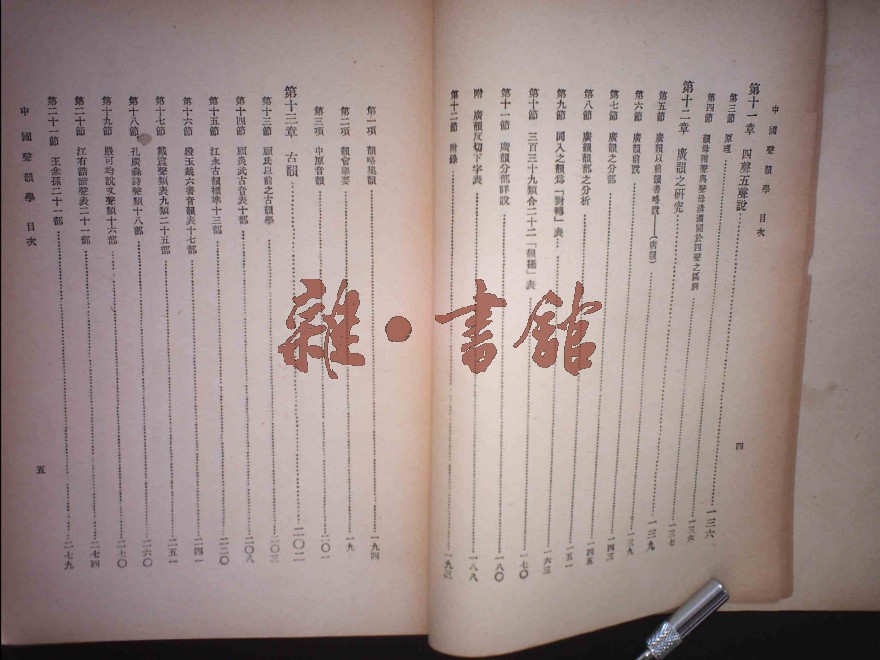 中國聲韻學 目次
四
第十一章 四聲五聲說 一三六
第三節 原理 一三六
第四節 韻母附聲與聲母清濁關於四聲之區別
第十二章 廣韻之研究 一三七
第五節 廣韻以前韻書略說——(唐韻) 一三九
第六節 廣韻前說 一三九
第七節 廣韻之分部 一四三
第八節 廣韻韻部之分析 一四五
第九節 同入之韻為「對轉」表 一五一
第十節 三百三十九類合二十二「韻攝」表 一六三
第十一節 廣韻分部詳說 一七〇
附 廣韻反切下字表 一八〇
第十二節 附錄 一八八
一九三
第一項 韻略集韻 一九四
第二項 韻會舉要 一九
第三項 中原音韻 二〇一
第十三章 古韻 二〇二
第十三節 顧氏以前之古韻學 二〇三
第十四節 顧炎武古音表十部 二〇八
第十五節 江永古韻標準十三部 二二〇
第十六節 段玉裁六書音韻表十七部 二四一
第十七節 戴震聲類表九類二十五部 二五一
第十八節 孔廣森詩聲類十八部 二六〇
第十九節 嚴可均說文聲類十六部 二七〇
第二十節 江有誥諧聲表二十一部 二七四
第二十一節 王念孫二十一部 二七九
中國聲韻學 目次
五
雜·書館